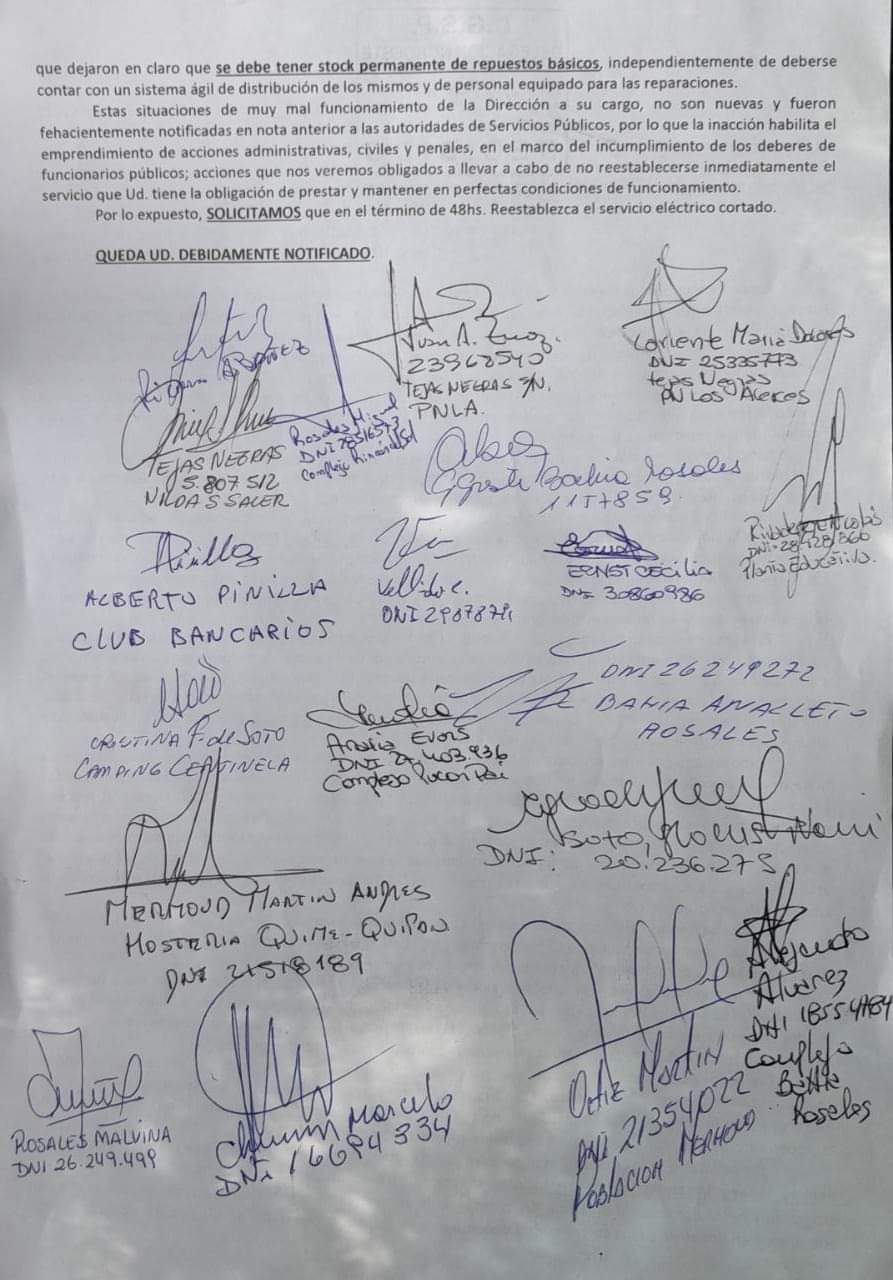 que dejaron en claro que se debe tener stock permanente de repuestos básicos, independientemente de deberse
contar con un sistema ágil de distribución de los mismos y de personal equipado para las reparaciones.
Estas situaciones de muy mal funcionamiento de la Dirección a su cargo, no son nuevas y fueron
fehacientemente notificadas en nota anterior a las autoridades de Servicios Públicos, por lo que la inacción habilita el
emprendimiento de acciones administrativas, civiles y penales, en el marco del incumplimiento de los deberes de
funcionarios públicos; acciones que nos veremos obligados a llevar a cabo de no reestablecerse inmediatamente el
servicio que Ud. tiene la obligación de prestar y mantener en perfectas condiciones de funcionamiento.
Por lo expuesto, SOLICITAMOS que en el término de 48hs. Reestablezca el servicio eléctrico cortado.
QUEDA UD. DEBIDAMENTE NOTIFICADO.
Juan A.
23968540
TEJAS NEGRAS S/N.
PNLA.
Loriente Maria Dolores
DNI 25335773
tejas Negras
PN Los Alerces
TEJAS NEGRAS
5.807512
NILDA S SALER
Rosales Miguel
DNI 28516573
Complejo Rincón del Sol
Bahia Rosales
DNI-28428366
Planta Educativa.
ALBERTO PINILLA
CLUB BANCARIOS
Vellido C.
ERNST CECILIA
DNI 30860986
CRISTINA F. de SOTO
CAMPING CENTINELA
Analia Evans
Complejo Pucon Pai
DNI 26249272
BAHIA
ROSALES
SOTO,
DNI: 20.236.275
MERMOUD MARTIN ANDRES
HOSTERIA QUIME-QUIPAN
DNI 21518189
Alejandro
Alvarez
DNI
Complejo
Bahia
Rosales
ORTIZ MARTIN
DNI 21354022
POBLACION MERMOUD
ROSALES MALVINA
DNI 26.249.499
Marcelo
DNI 16694334